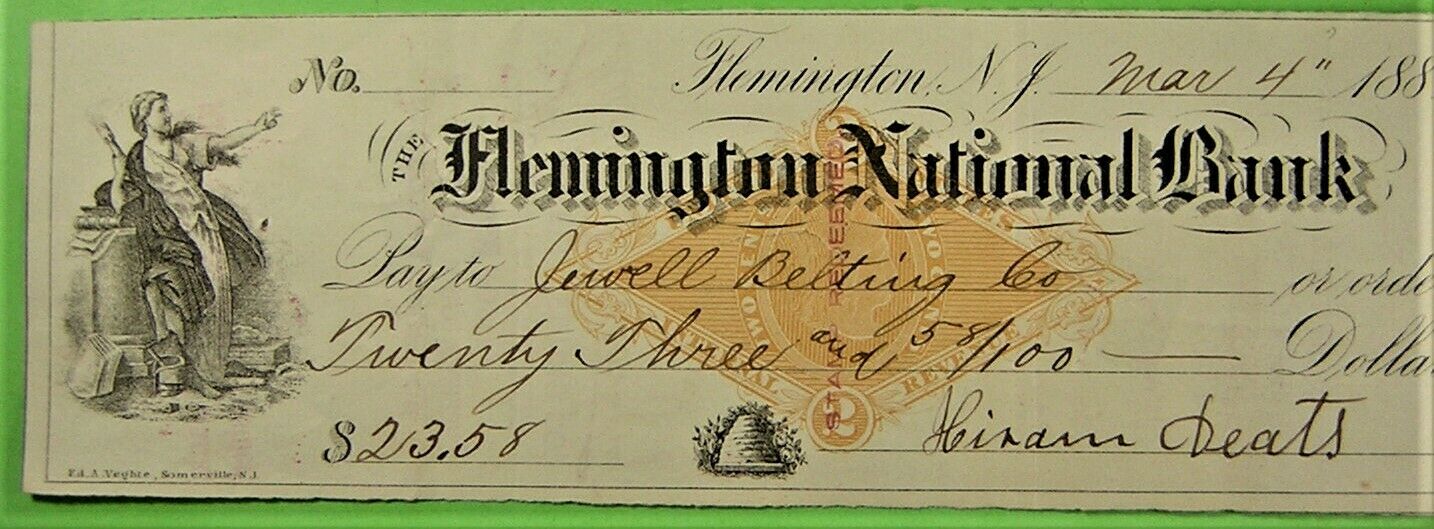 No. Flemington, N.J. Mar 4" 188
THE Flemington National Bank
Pay to Jewell Belting Co or orde
Twenty Three and 58/100 Dolla
$23.58 Hiram Deats
STAMP REDEEMED
TWO CENTS
INTERNAL REVENUE
2
Ed. A. Veghte, Somerville, N.J.